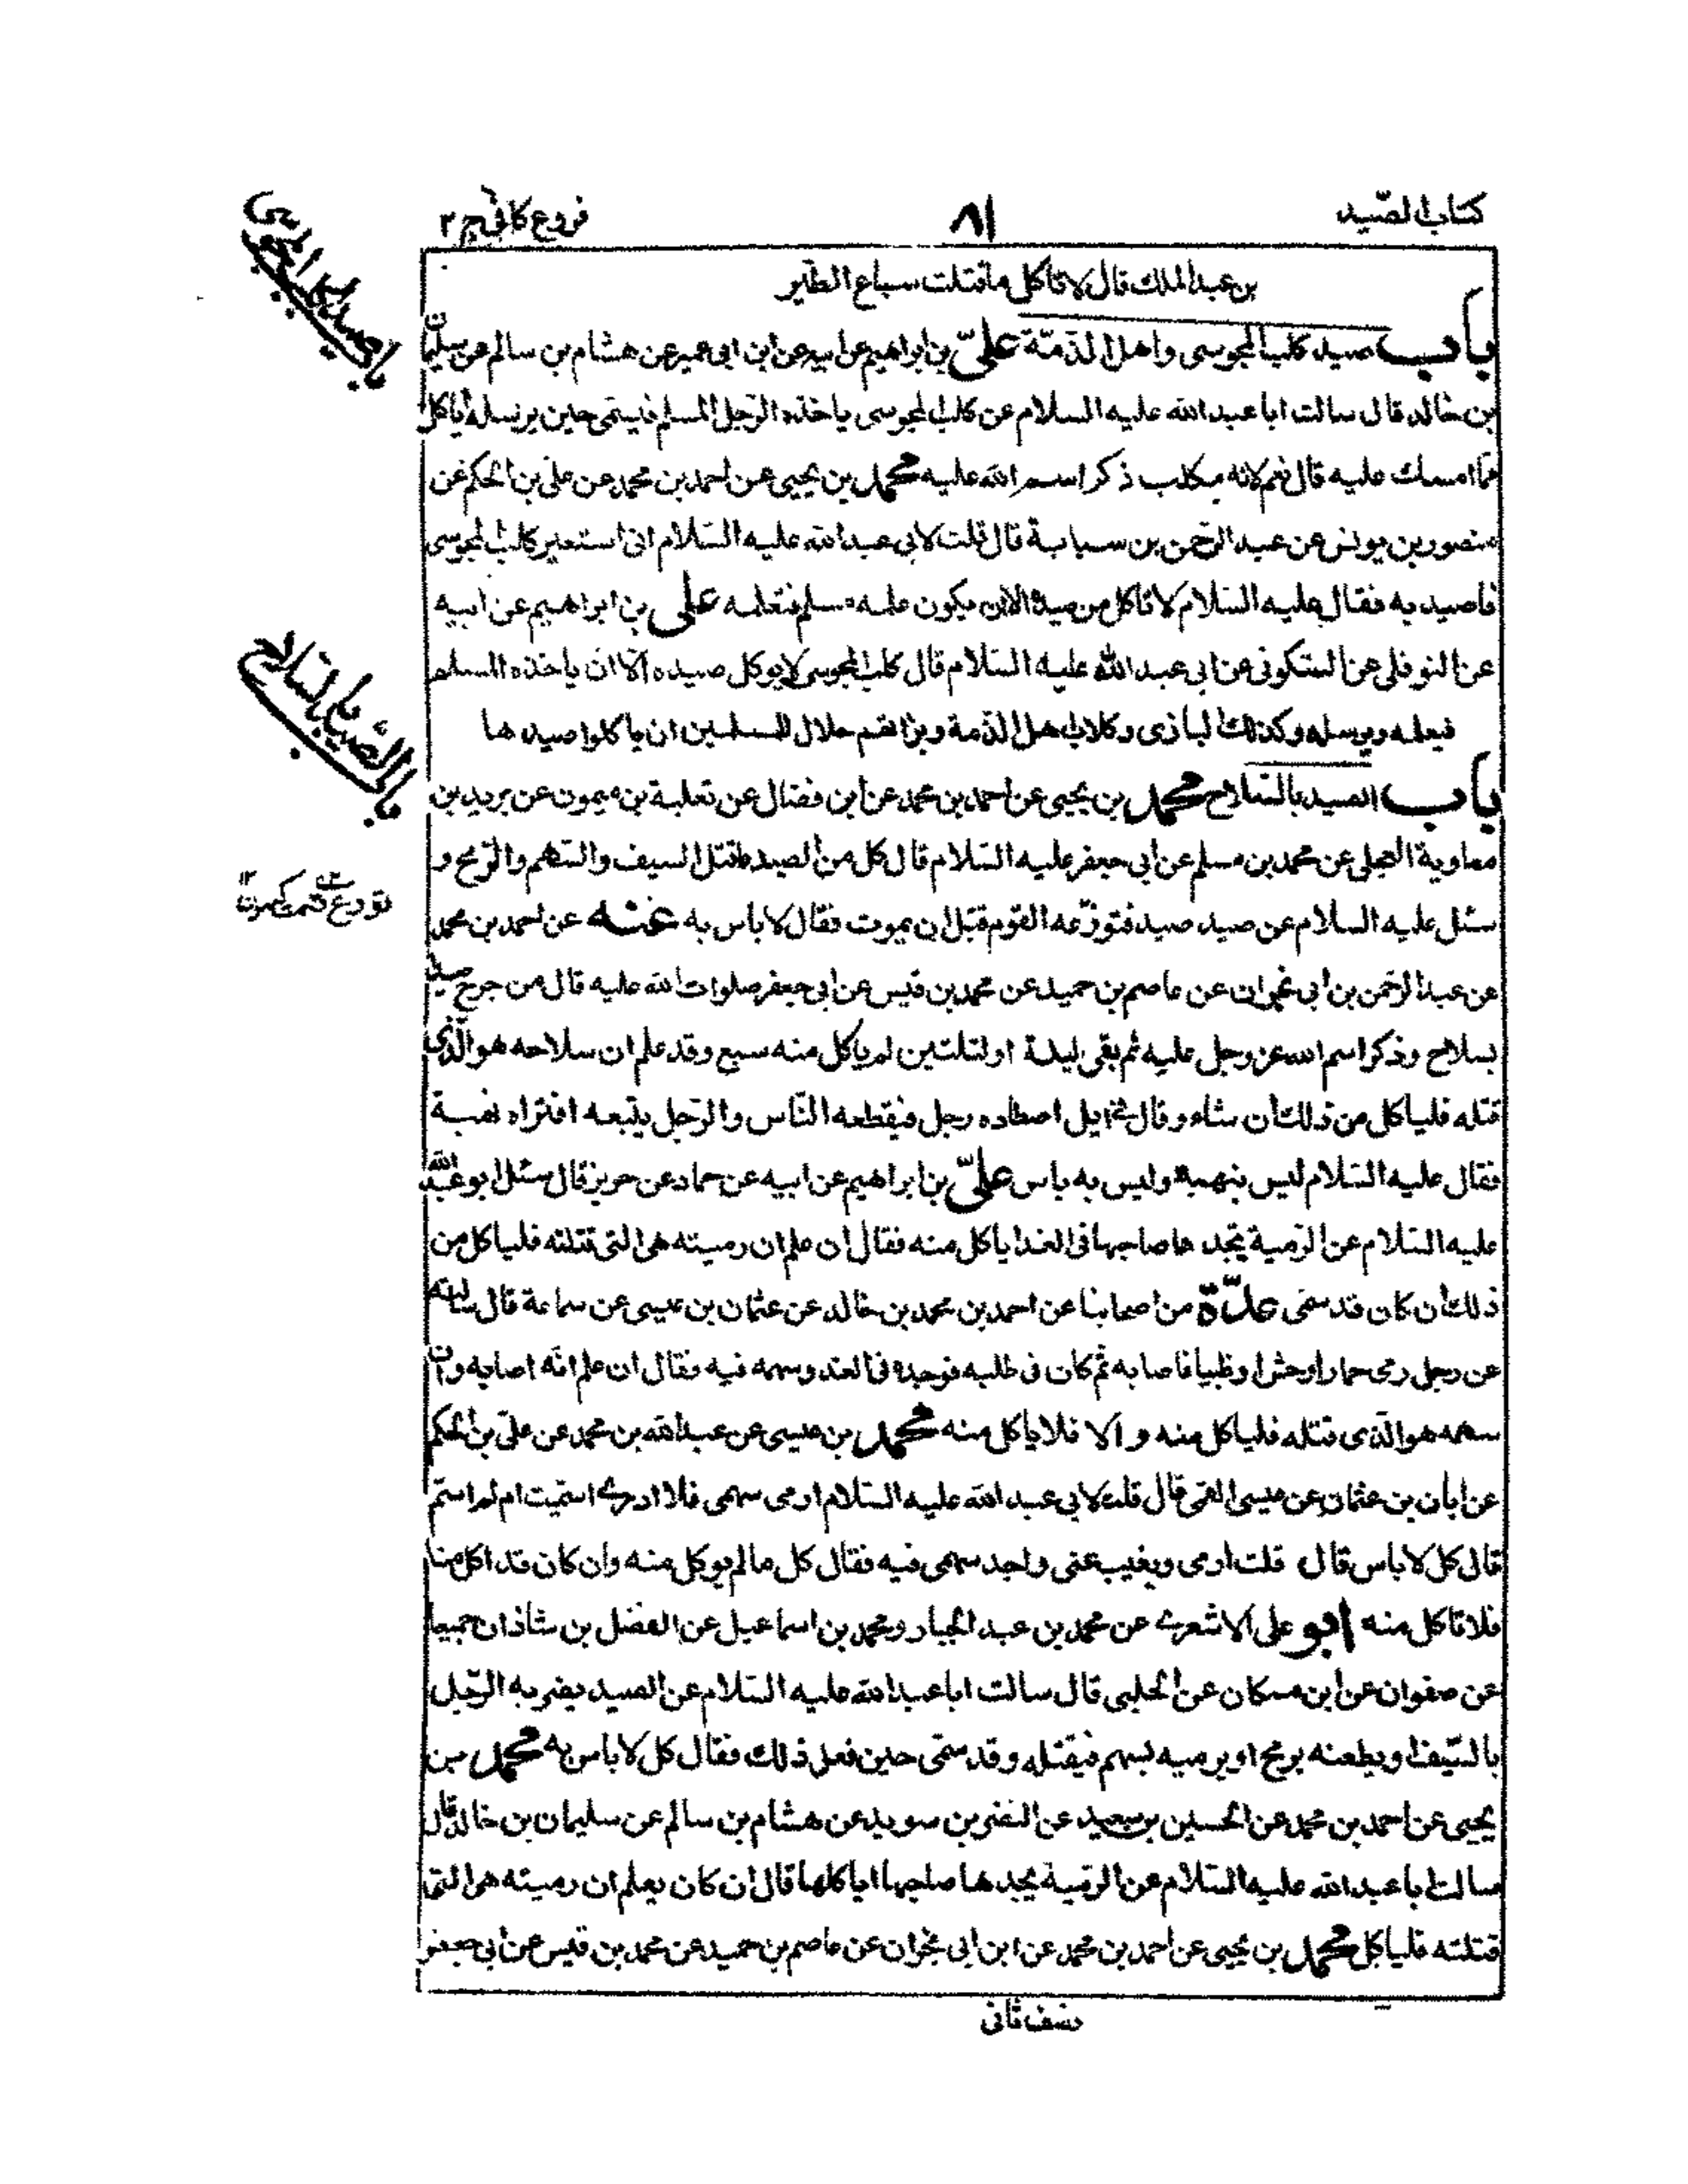 كتاب الصّيد
٨١
فروع كافي ج ٢
بن عبد الملك قال لا تاكل ما قتلت سباع الطّير
باب صيد كلب المجوسى واهل الذمّة علىّ بن ابراهيم عن ابيه عن ابن ابى عمير عن هشام بن سالم عن سليمان
بن خالد قال سالت ابا عبد الله عليه السلام عن كلب المجوسى ياخذه الرّجل المسلم فيسمّى حين يرسله أياكل
ممّا امسك عليه قال نعم لانه مكلب ذكر اسم الله عليه محمد بن يحيى عن احمد بن محمد عن على بن الحكم عن
منصور بن يونس عن عبد الرّحمن بن سيابة قال قلت لابى عبد الله عليه السّلام انى استعير كلب المجوسى
فاصيد به فقال عليه السّلام لا تاكل من صيده الا ان يكون علمه مسلم فتعلمه على بن ابراهيم عن ابيه
عن النوفلى عن السّكونى عن ابى عبد الله عليه السّلام قال كلب المجوسى لا يوكل صيده الّا ان ياخذه المسلم
فيعلمه ويرسله وكذلك البازى وكلاب اهل الذمة وبزاتهم حلال للمسلمين ان ياكلوا صيدها
باب الصيد بالسّلاح محمد بن يحيى عن احمد بن محمد عن ابن فضال عن ثعلبة بن ميمون عن بريد بن
معاوية العجلى عن محمد بن مسلم عن ابى جعفر عليه السّلام قال كل من الصيد ما قتل السيف والسّهم والرّمح و
سئل عليه السلام عن صيد صيد فتوزّعه القوم قبل ان يموت فقال لا باس به عنه عن احمد بن محمد
عن عبد الرّحمن بن ابى نجران عن عاصم بن حميد عن محمد بن قيس عن ابى جعفر صلوات الله عليه قال من جرح صيدا
بسلاح وذكر اسم الله عز وجل عليه ثم بقى ليلة او ليلتين لم ياكل منه سبع وقد علم ان سلاحه هو الّذى
قتله فلياكل من ذلك ان شاء وقال فى ايل اصطاده رجل فيقطعه النّاس والرّجل يتبعه افتراه نهبة
فقال عليه السّلام ليس بنهبة وليس به باس علىّ بن ابراهيم عن ابيه عن حماد عن حريز قال سئل ابو عبد الله
عليه السّلام عن الرّمية يجدها صاحبها فى الغد اياكل منه فقال ان علم ان رميته هى التى قتلته فلياكل من
ذلك ان كان قد سمّى عدّة من اصحابنا عن احمد بن محمد بن خالد عن عثمان بن عيسى عن سماعة قال سالته
عن رجل رمى حمارا وحشا او ظبيا فاصابه ثم كان فى طلبه فوجده فى الغد وسهمه فيه فقال ان علم انه اصابه وان
سهمه هو الّذى قتله فلياكل منه والا فلا ياكل منه محمد بن عيسى عن عبد الله بن محمد عن علىّ بن الحكم
عن ابان بن عثمان عن عيسى القمى قال قلت لابى عبد الله عليه السّلام ارمى سهمى فلا ادرى اسمّيت ام لم اسمّ
قال كل لا باس قال قلت ارمى ويغيب عنى واجد سهمى فيه فقال كل ما لم يوكل منه وان كان قد اكل منا
فلا تاكل منه ابو على الاشعرى عن محمد بن عبد الجبار ومحمد بن اسماعيل عن الفضل بن شاذان جميعا
عن صفوان عن ابن مسكان عن الحلبى قال سالت ابا عبد الله عليه السّلام عن الصيد يضربه الرّجل
بالسّيف او يطعنه برمح او يرميه بسهم فيقتله وقد سمّى حين فعل ذلك فقال كل لا باس به محمد بن
يحيى عن احمد بن محمد عن الحسين بن سعيد عن النضر بن سويد عن هشام بن سالم عن سليمان بن خالد قال
سالت ابا عبد الله عليه السّلام عن الرّمية يجدها صاحبها اياكلها قال ان كان يعلم ان رميته هى التى
قتلته فلياكل محمد بن يحيى عن احمد بن محمد عن ابن ابى نجران عن عاصم بن حميد عن محمد بن قيس عن ابى جعفر
نصف ثانى
باب صيد كلب المجوسى
باب الصّيد بالسّلاح
توزع